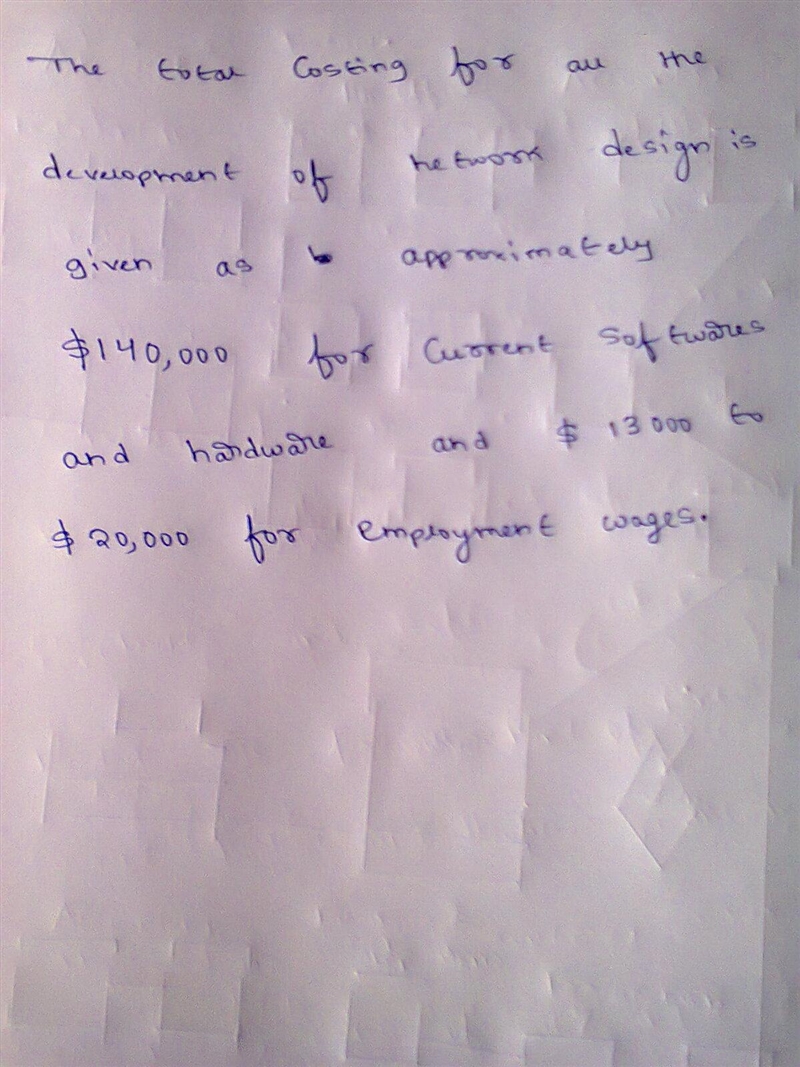 The total Costing for all the
development of network design is
given as approximately
$140,000 for Current Softwares
and hardware and $ 13000 to
$ 20,000 for employment wages.